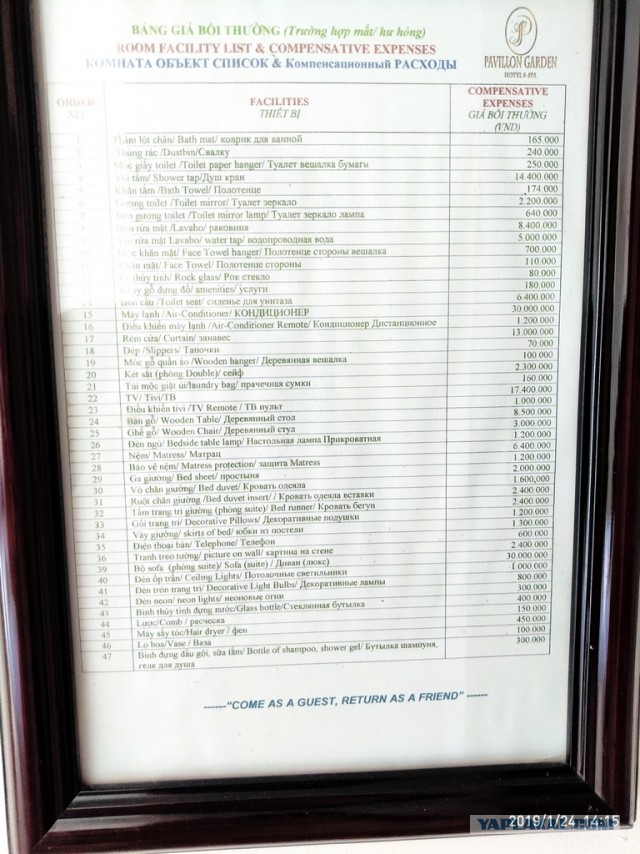 BẢNG GIÁ BỒI THƯỜNG (Trường hợp mất/ hư hỏng)
ROOM FACILITY LIST & COMPENSATIVE EXPENSES
КОМНАТА ОБЪЕКТ СПИСОК & Компенсационный РАСХОДЫ
PAVILLON GARDEN
HOTEL & SPA
ORDER FACILITIES COMPENSATIVE EXPENSES
STT THIẾT BỊ GIÁ BỒI THƯỜNG (VND)
1 Thảm lót chân/ Bath mat/ коврик для ванной 165.000
2 Thùng rác /Dustbin/Свалку 240.000
3 Móc giấy toilet /Toilet paper hanger/ Туалет вешалка бумаги 250.000
4 tắm/ Shower tap/Душ кран 14.400.000
5 Khăn tắm /Bath Towel/ Полотенце 174.000
6 Gương toilet /Toilet mirror/ Туалет зеркало 2.200.000
7 Đèn gương toilet /Toilet mirror lamp/ Туалет зеркало лампа 640.000
rửa mặt /Lavabo/ раковина 8.400.000
rửa mặt Lavabo/ water tap/ водопроводная вода 5.000.000
Móc khăn mặt/ Face Towel hanger/ Полотенце стороны вешалка 700.000
mặt/ Face Towel/ Полотенце стороны 110.000
thủy tinh/ Rock glass/ Рок стекло 80.000
gỗ đựng đồ/ amenities/ услуги 180.000
14 Bồn cầu /Toilet seat/ сиденье для унитаза 6.400.000
15 Máy lạnh /Air-Conditioner/ КОНДИЦИОНЕР 30.000.000
16 Điều khiển máy lạnh /Air-Conditioner Remote/ Кондиционер Дистанционное 1.200.000
17 Rèm cửa/ Curtain/ занавес 13.000.000
18 Dép /Slippers/ Тапочки 70.000
19 Móc gỗ quần áo /Wooden hanger/ Деревянная вешалка 100.000
20 Két sắt (phòng Double)/ сейф 2.300.000
21 Túi mộc giặt ủi/laundry bag/ прачечная сумки 160.000
22 TV/ Tivi/ТВ 17.400.000
23 Điều khiển tivi /TV Remote / ТВ пульт 1.000.000
24 Bàn gỗ/ Wooden Table/ Деревянный стол 8.500.000
25 Ghế gỗ/ Wooden Chair/ Деревянный стул 3.000.000
26 Đèn ngủ/ Bedside table lamp/ Настольная лампа Прикроватная 1.200.000
27 Nệm/ Matress/ Матрац 6.400.000
28 Bảo vệ nệm/ Matress protection/ защита Matress 1.200.000
29 Ga giường/ Bed sheet/ простыня 2.000.000
30 Vỏ chăn giường/ Bed duvet/ Кровать одеяла 1.600,000
31 Ruột chăn giường /Bed duvet insert/ / Кровать одеяла вставки 2.400.000
32 Tấm trang trí giường (phòng suite)/ Bed runner/ Кровать бегун 2.400.000
33 Gối trang trí/ Decorative Pillows/ Декоративные подушки 1.200.000
34 Váy giường/ skirts of bed/ юбки из постели 1.300.000
35 Điện thoại bàn/ Telephone/ Телефон 600.000
36 Tranh treo tường/ picture on wall/ картина на стене 2.400.000
39 Bộ sofa (phòng suite)/ Sofa (suite) / Диван (люкс) 30.000.000
40 Đèn ốp trần/ Ceiling Lights/ Потолочные светильники 1.000.000
41 Đèn tròn trang trí/ Decorative Light Bulbs/ Декоративные лампы 800.000
42 Đèn neon/ neon lights/ неоновые огни 300.000
43 Bình thủy tinh đựng nước/Glass bottle/Стеклянная бутылка 400.000
44 Lược/Comb / расческа 150.000
45 Máy sấy tóc/Hair dryer / фен 450.000
46 Lọ hoa/Vase / Ваза 100.000
47 Bình đựng dầu gội, sữa tắm/ Bottle of shampoo, shower gel/ Бутылка шампуня, 300.000
геля для душа
------"COME AS A GUEST, RETURN AS A FRIEND" ------
2019/1/24 14:15